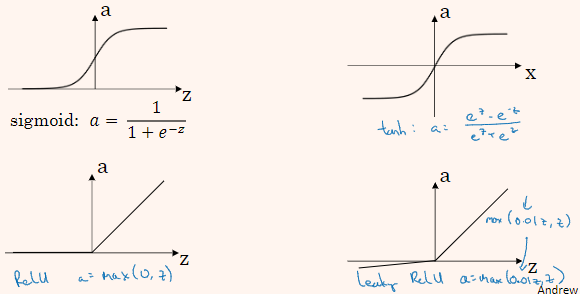 a
z
sigmoid: a = 1 / (1 + e^{-z})
a
x
tanh: a = (e^z - e^{-z}) / (e^z + e^z)
a
z
ReLU a = max(0, z)
a
max(0.01z, z)
z
Leaky ReLU a = max(0.01z, z)
Andrew